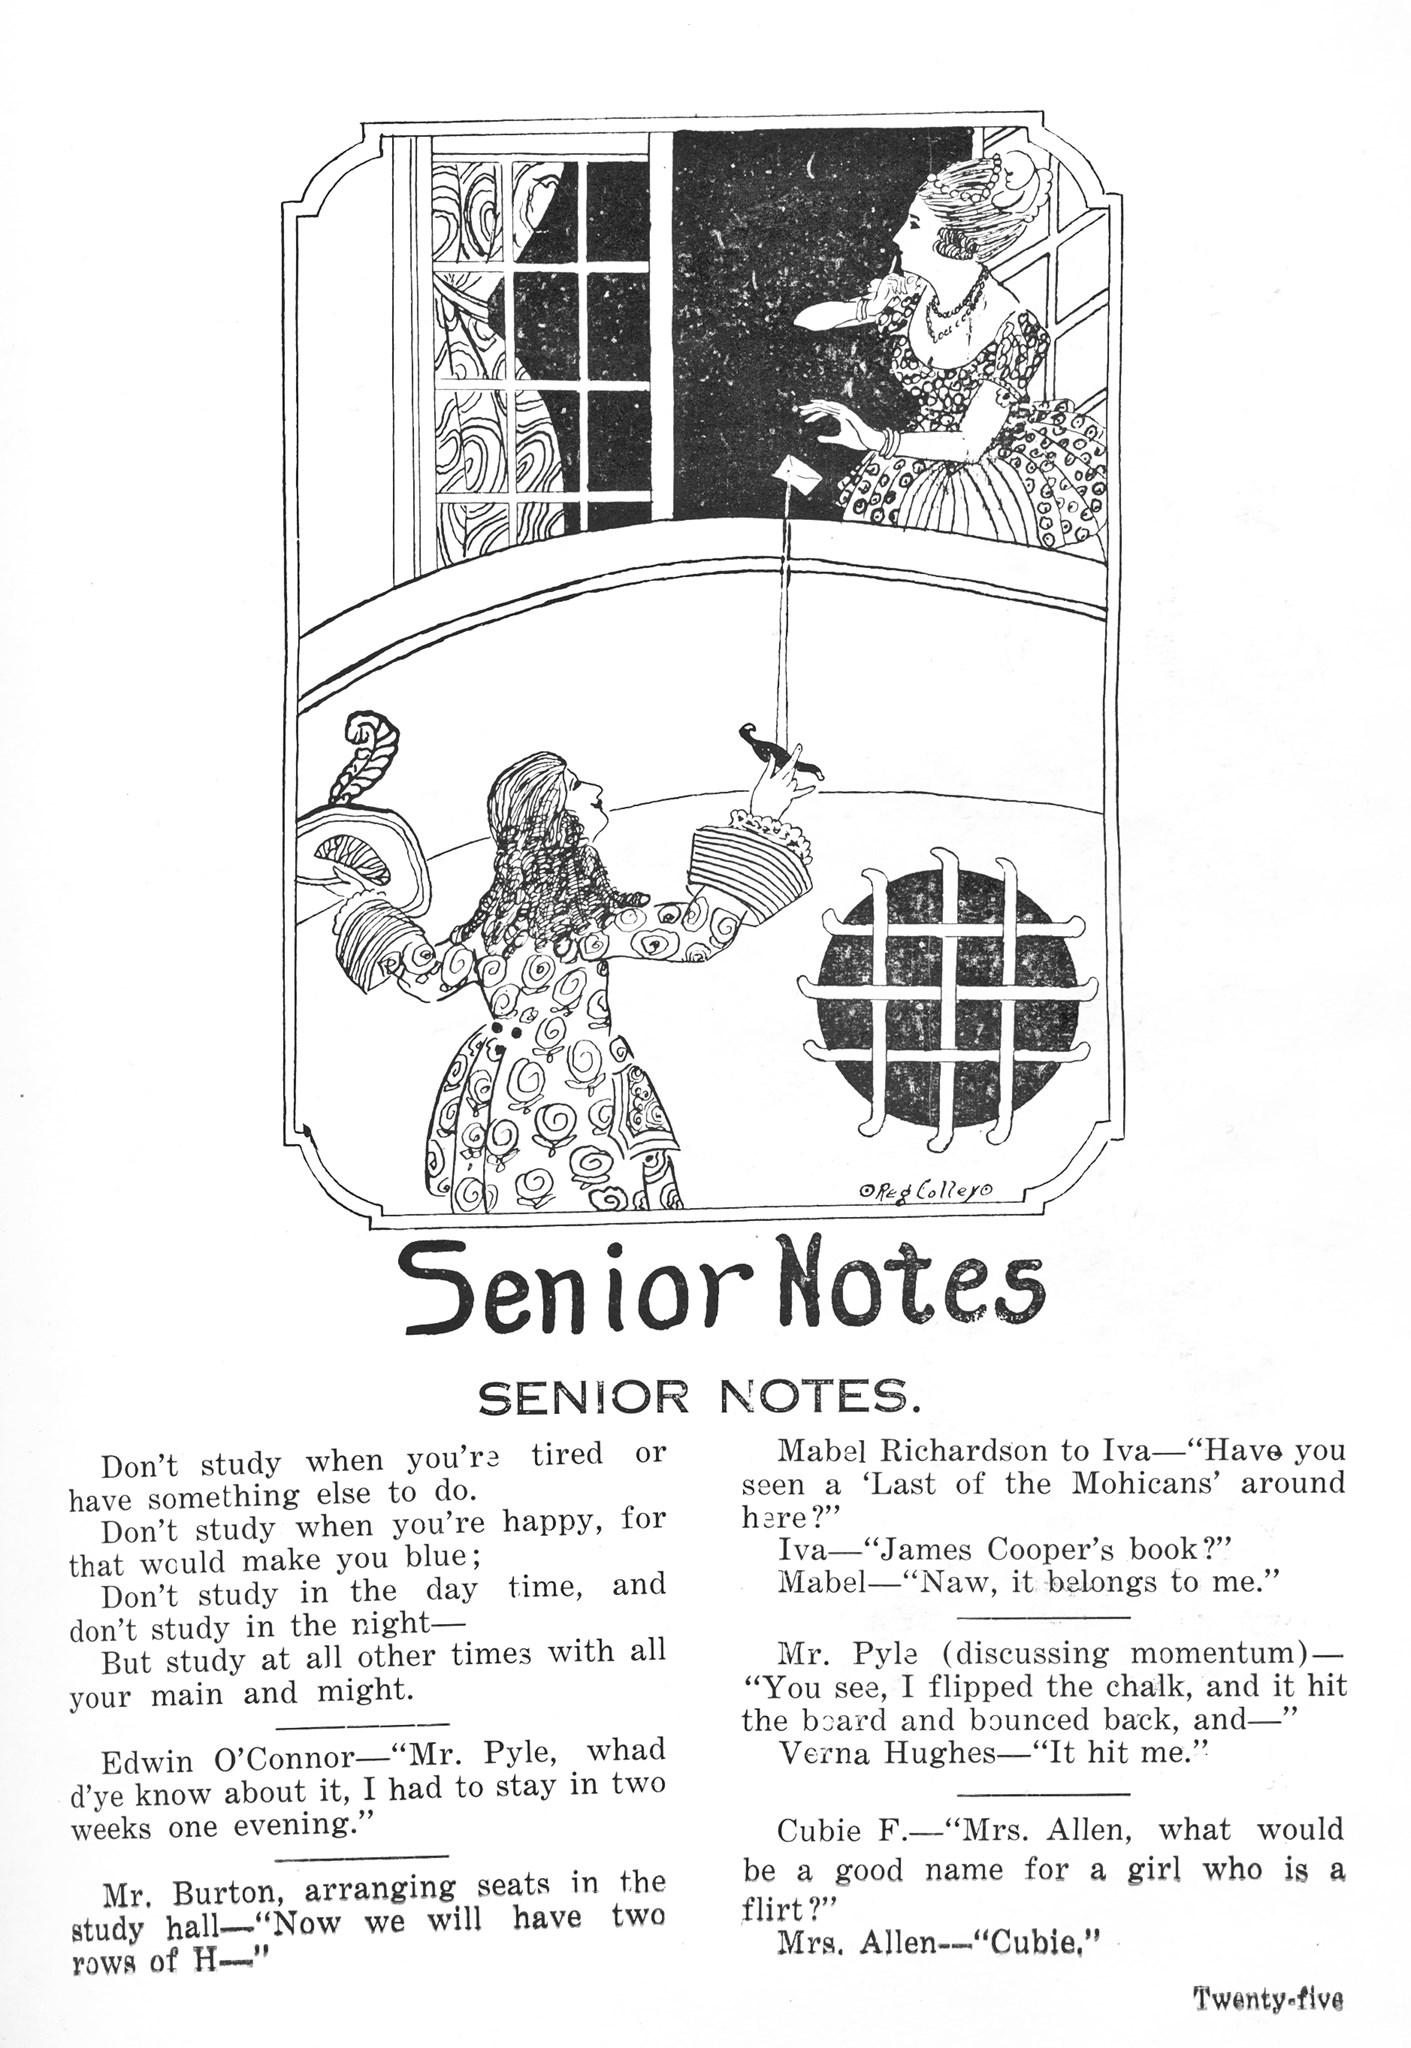 Reg Colley
Senior Notes
SENIOR NOTES.
Don't study when you're tired or
have something else to do.
Don't study when you're happy, for
that would make you blue;
Don't study in the day time, and
don't study in the night—
But study at all other times with all
your main and might.
Edwin O'Connor—“Mr. Pyle, whad
d'ye know about it, I had to stay in two
weeks one evening.”
Mr. Burton, arranging seats in the
study hall—“Now we will have two
rows of H—”
Mabel Richardson to Iva—“Have you
seen a ‘Last of the Mohicans’ around
here?”
Iva—“James Cooper's book?”
Mabel—“Naw, it belongs to me.”
Mr. Pyle (discussing momentum)—
“You see, I flipped the chalk, and it hit
the board and bounced back, and—”
Verna Hughes—“It hit me.”
Cubie F.—“Mrs. Allen, what would
be a good name for a girl who is a
flirt?”
Mrs. Allen—“Cubie.”
Twenty-five